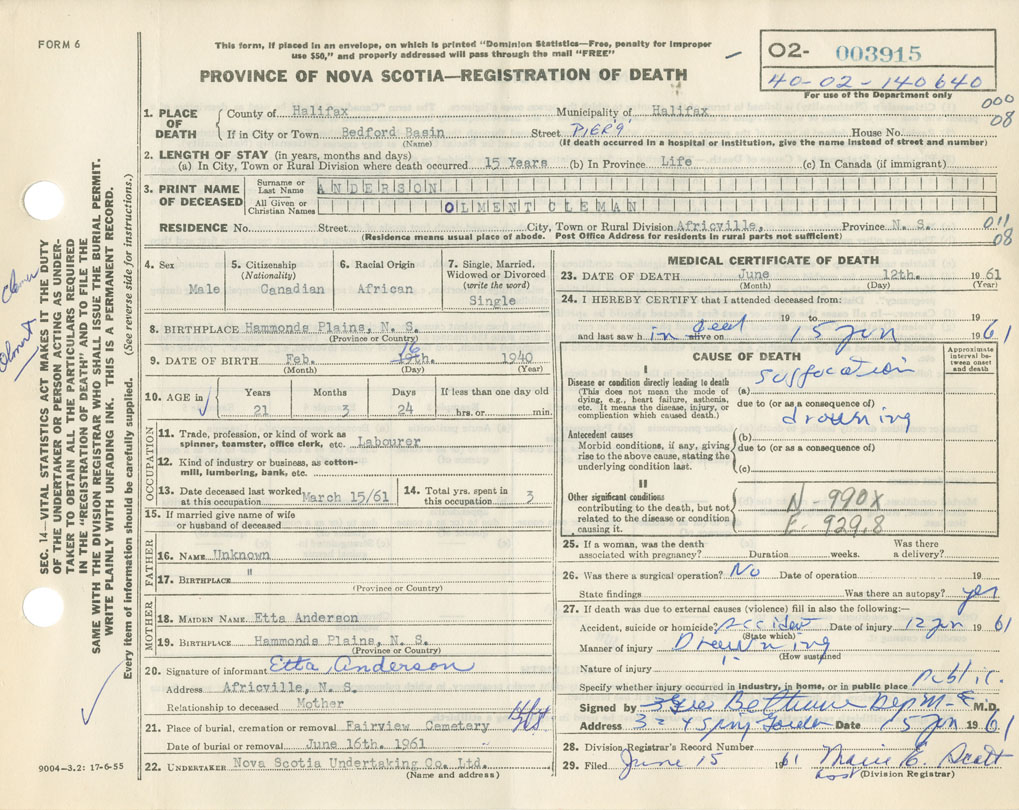 FORM 6
This form, if placed in an envelope, on which is printed "Dominion Statistics—Free, penalty for improper
use $50," and properly addressed will pass through the mail "FREE"
PROVINCE OF NOVA SCOTIA—REGISTRATION OF DEATH
O2- 003915
40-02-140640
For use of the Department only
000
08
1. PLACE OF DEATH
County of Halifax Municipality of Halifax
If in City or Town Bedford Basin Street PIER 9 House No.
(Name) (If death occurred in a hospital or institution, give the name instead of street and number)
2. LENGTH OF STAY (in years, months and days)
(a) In City, Town or Rural Division where death occurred 15 Years (b) In Province Life (c) In Canada (if immigrant)
3. PRINT NAME OF DECEASED
Surname or Last Name ANDERSON
All Given or Christian Names OLMENT CLEMAN
RESIDENCE No. Street City, Town or Rural Division Africville, Province N. S.
(Residence means usual place of abode. Post Office Address for residents in rural parts not sufficient)
011
08
4. Sex
Male
5. Citizenship
(Nationality)
Canadian
6. Racial Origin
African
7. Single, Married,
Widowed or Divorced
(write the word)
Single
8. BIRTHPLACE Hammonds Plains, N. S.
(Province or Country)
9. DATE OF BIRTH Feb. 19th. 16 1940
(Month) (Day) (Year)
10. AGE in
Years Months Days If less than one day old
21 3 24 hrs. or min.
OCCUPATION
11. Trade, profession, or kind of work as
spinner, teamster, office clerk, etc. Labourer
12. Kind of industry or business, as cotton-
mill, lumbering, bank, etc.
13. Date deceased last worked
at this occupation March 15/61
14. Total yrs. spent in
this occupation 3
15. If married give name of wife
or husband of deceased
FATHER
16. NAME Unknown
17. BIRTHPLACE "
(Province or Country)
MOTHER
18. MAIDEN NAME Etta Anderson
19. BIRTHPLACE Hammonds Plains, N. S.
(Province or Country)
20. Signature of informant Etta Anderson
Address Africville, N. S.
Relationship to deceased Mother
21. Place of burial, cremation or removal Fairview Cemetery
Date of burial or removal June 16th. 1961
22. UNDERTAKER Nova Scotia Undertaking Co. Ltd.
(Name and address)
MEDICAL CERTIFICATE OF DEATH
23. DATE OF DEATH June 12th. 1961
(Month) (Day) (Year)
24. I HEREBY CERTIFY that I attended deceased from:
19 to 19
and last saw h alive on 15 Jun 1961
CAUSE OF DEATH
Approximate
interval be-
tween onset
and death
I
Disease or condition directly leading to death
(This does not mean the mode of
dying, e.g., heart failure, asthenia,
etc. It means the disease, injury, or
complication which caused death.)
(a) suffocation
due to (or as a consequence of)
drowning
Antecedent causes
Morbid conditions, if any, giving
rise to the above cause, stating the
underlying condition last.
(b)
due to (or as a consequence of)
(c)
II
Other significant conditions
contributing to the death, but not
related to the disease or condition
causing it.
N - 990X
E. 929.8
25. If a woman, was the death
associated with pregnancy? Duration weeks. Was there
a delivery?
26. Was there a surgical operation? No Date of operation 19
State findings Was there an autopsy? yes
27. If death was due to external causes (violence) fill in also the following:—
Accident, suicide or homicide? accident Date of injury 12 Jun 1961
(State which)
Manner of injury Drowning
(How sustained
Nature of injury
Specify whether injury occurred in industry, in home, or in public place public.
Signed by M.D.
Address Date 15 Jun 1961
28. Division Registrar's Record Number
29. Filed June 15 1961 Marie E. Scott
(Division Registrar)
SEC. 14—VITAL STATISTICS ACT MAKES IT THE DUTY
OF THE UNDERTAKER OR PERSON ACTING AS UNDER-
TAKER TO OBTAIN ALL THE PARTICULARS REQUIRED
IN THE "REGISTRATION OF DEATH" AND TO FILE THE
SAME WITH THE DIVISION REGISTRAR WHO SHALL ISSUE THE BURIAL PERMIT.
WRITE PLAINLY WITH UNFADING INK. THIS IS A PERMANENT RECORD.
Every item of information should be carefully supplied. (See reverse side for instructions.)
9004-3.2: 17-6-55